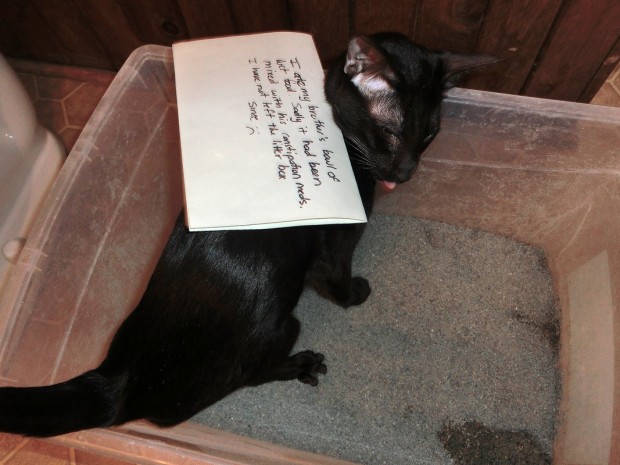 I ate my brother's bowl of
wet food. Sadly it had been
mixed with his constipation meds.
I have not left the litter box
since :(